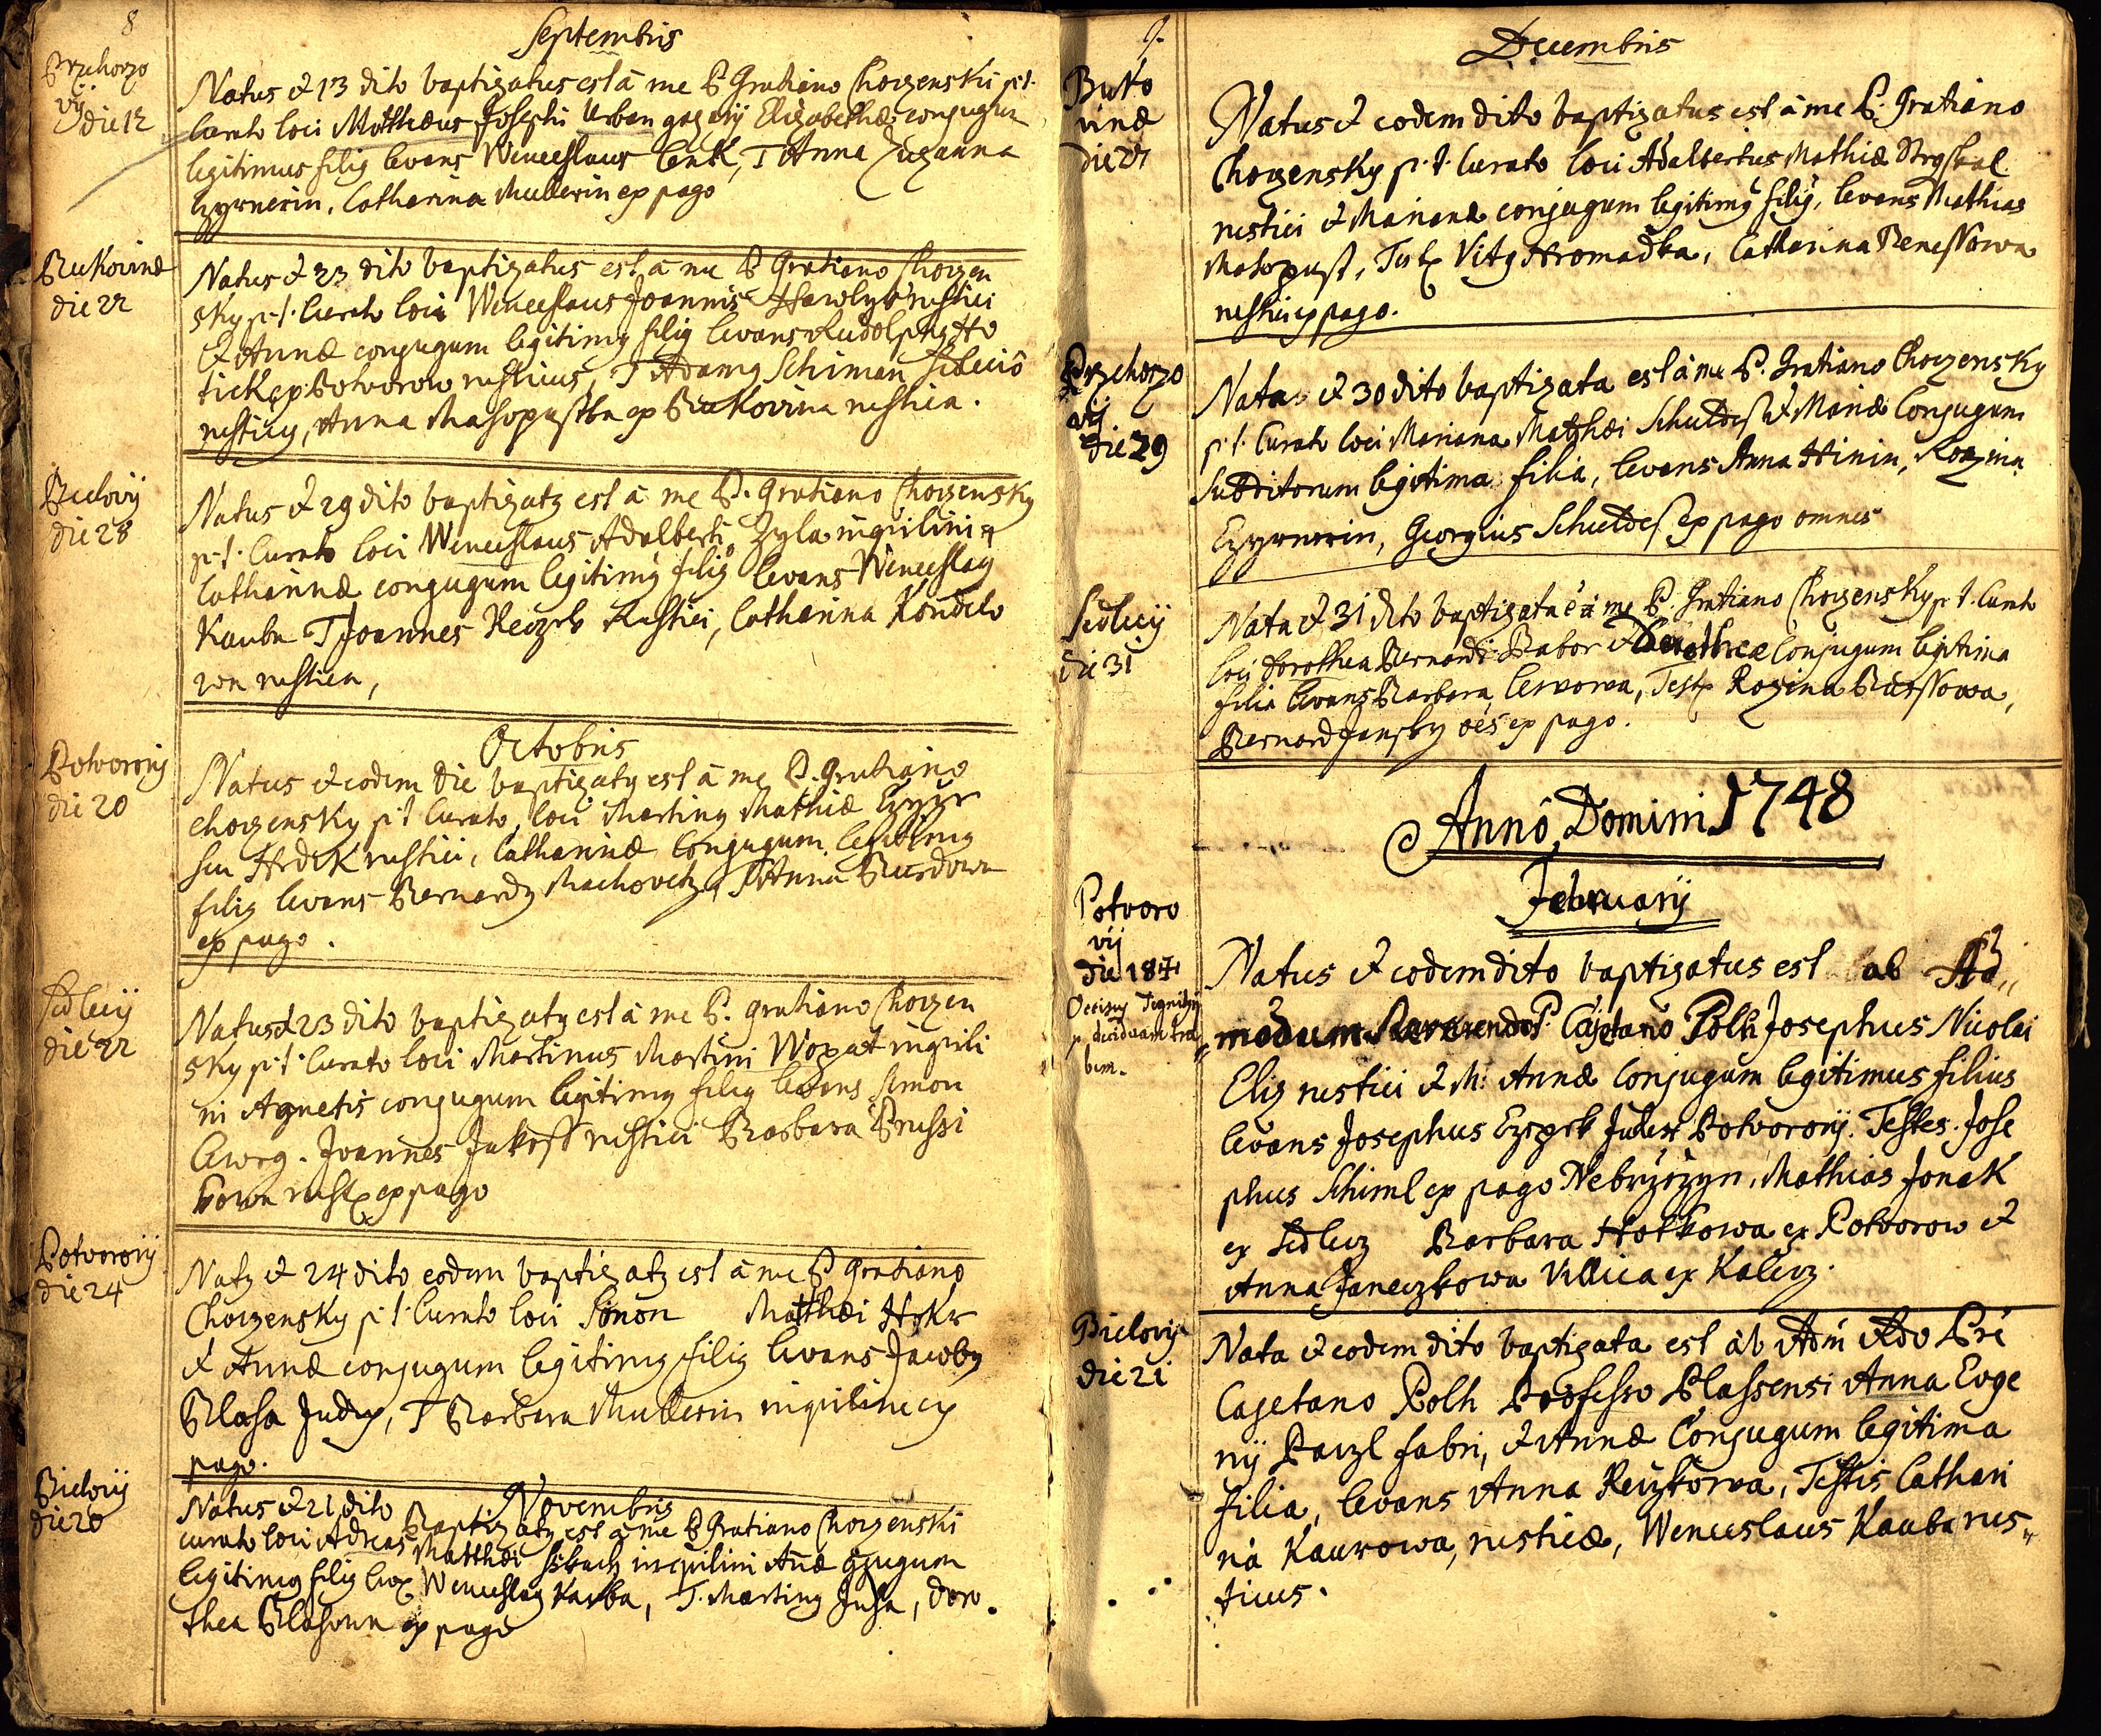 8
Septembris
Przehorzo
vij
die 12
Natus & 13 dito baptizatus est à me P. Gratiano Chorzenski p.t.
Curato loci Mathæus Josephi Urban Elizabethæ conjugum
legitimus filig levans Wenceslaus Cenk, T Anna Zuzanna
Czyrnerin, Catharina Mullerin ex pago
Bukovinæ
die 22
Natus & 23 dito baptizatus est à me P. Gratiano Chorzen
sky p.t. Curato loci Wenceslaus Joannis Hawlyk rustici
& Annæ conjugum legitimg filig levans Rudolphg Ho
tick ex Potvorow rusticus, T Adamg Schiman
rusticg, Anna Masopustka ex Bukovina rustica.
Bielovij
die 28
Natus & 29 dito baptizatg est à me P. Gratiano Chorzensky
p.t. Curato loci Wenceslaus Adalberti Zyla inquilini &
Catharinæ conjugum legitimg filig levans Wenceslag
Kauba T Joannes Reczek Rustici, Catharina Kondelo
wa rustica,
Octobris
Potvorovij
die 20
Natus & eodem die baptizatg est à me P. Gratiano
Chorzensky p.t. Curato loci Marting Mathiæ
seu Hrdek rustici, Catharinæ Conjugum legitimg
filig levans Bernardg Machovetz, T Anna Burdowa
ex pago.
Sedlecij
die 22
Natus & 23 dito baptizatg est à me P. Gratiano Chorzen
sky p.t. Curato loci Martinus Martini Wopat inquili
ni Agnetis conjugum legitimg filig levans Simon
Cworg. Joannes Jakoss rustici Barbara Brussi
kowa ex pago
Potvorovij
die 24
Natg & 24 dito eodem baptizatg est à me P. Gratiano
Chorzensky p.t. Curato loci Simon Matthæi
& Annæ conjugum legitimg filig levans Jacobg
Blasa Judex, T Barbara Mullerin inquilinæ ex
pago.
Novembris
Bielovij
die 20
Natus & 21 dito Baptizatg est à me P Gratiano Chorzenski
curato loci Adreas Matthæi inquilini Añæ conjugum
legitimg filig Wenceslag Kauba, T. Marting Jusa, Doro
thea Blasowa ex pago
9.
Decembris
Buko
vinæ
die 27
Natus & eodem dito baptizatus est à me P. Gratiano
Chorzensky p.t. Curato loci Adalbertus Mathiæ
rustici & Marianæ conjugum legitimg filig, levans Mathias
Masopust, Vitg Hromadka, Catharina Benessowa
rustici ex pago.
Przehorzo
vij
die 29
Nata & 30 dito baptizata est à me P. Gratiano Chorzensky
p.t. Curato loci Mariana Matthæi Schuldes & Mariæ Conjugum
Subditorum legitima filia, levans Anna Hinin, Rozina
Czyrnerin, Georgius Schuldes ex pago omnes
Sedlecij
die 31
Nata & 31 dito baptizata ē à me P. Gratiano Chorzensky p.t. Curato
loci Dorothea Bernardi Babor & Dorotheæ Conjugum legitima
filia levans Barbara Cworowa, Rozina Burssowa,
Bernard Jansky oēs ex pago.
Annô Domini 1748
Februarij
Potvoro
vij
die 18
Occisg
p deciduam tra
bem.
Natus & eodem dito baptizatus est ab Ad„
„modum Reverendo P. Cajetano Polh Josephus Nicolai
Elig rustici & M: Annæ Conjugum legitimus filius
levans Josephus Judex Potvorovij. Testes. Jose
phus Schiml ex pago Nebrzyzyn, Mathias Jonak
ex Sedlecz Barbara Hotkowa ex Potvorow &
Anna Janeczkowa Villica ex Kalecz.
Bielovij
die 21
Nata & eodem dito baptizata est ab Adm̄ Rdo Pre
Cajetano Polh Professo Plassensi Anna Euge
nij Parzl fabri, & Annæ Conjugum legitima
filia, levans Anna Reczkowa, Testis Cathari
na Kaurowa, rusticæ, Wenceslaus Kauba rus„
ticus.